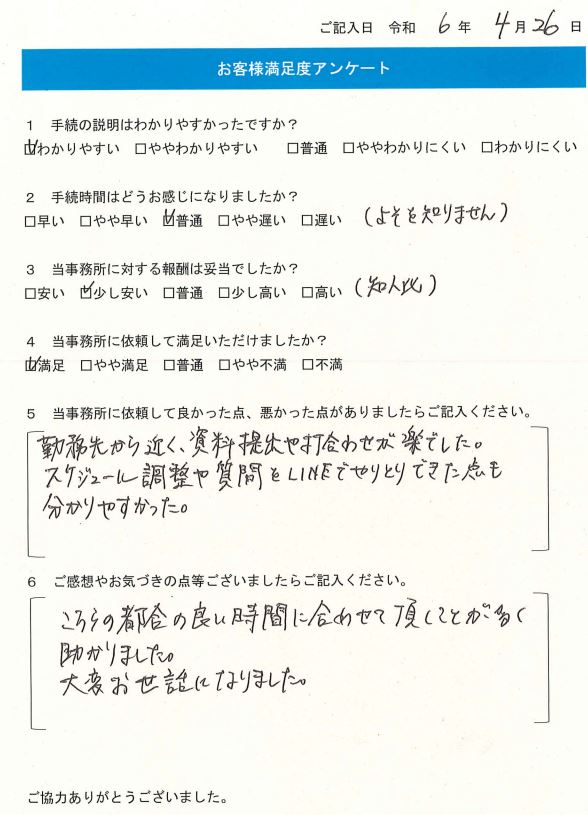 ご記入日 令和 6 年 4 月 26 日
お客様満足度アンケート
1 手続の説明はわかりやすかったですか？
☑わかりやすい □ややわかりやすい □普通 □ややわかりにくい □わかりにくい
2 手続時間はどうお感じになりましたか？
□早い □やや早い ☑普通 □やや遅い □遅い (よそを知りません)
3 当事務所に対する報酬は妥当でしたか？
□安い ☑少し安い □普通 □少し高い □高い (知人比)
4 当事務所に依頼して満足いただけましたか？
☑満足 □やや満足 □普通 □やや不満 □不満
5 当事務所に依頼して良かった点、悪かった点がありましたらご記入ください。
勤務先から近く、資料提出や打合わせが楽でした。
スケジュール調整や質問をLINEでやりとりできた点も
分かりやすかった。
6 ご感想やお気づきの点等ございましたらご記入ください。
こちらの都合の良い時間に合わせて頂くことが多く
助かりました。
大変お世話になりました。
ご協力ありがとうございました。